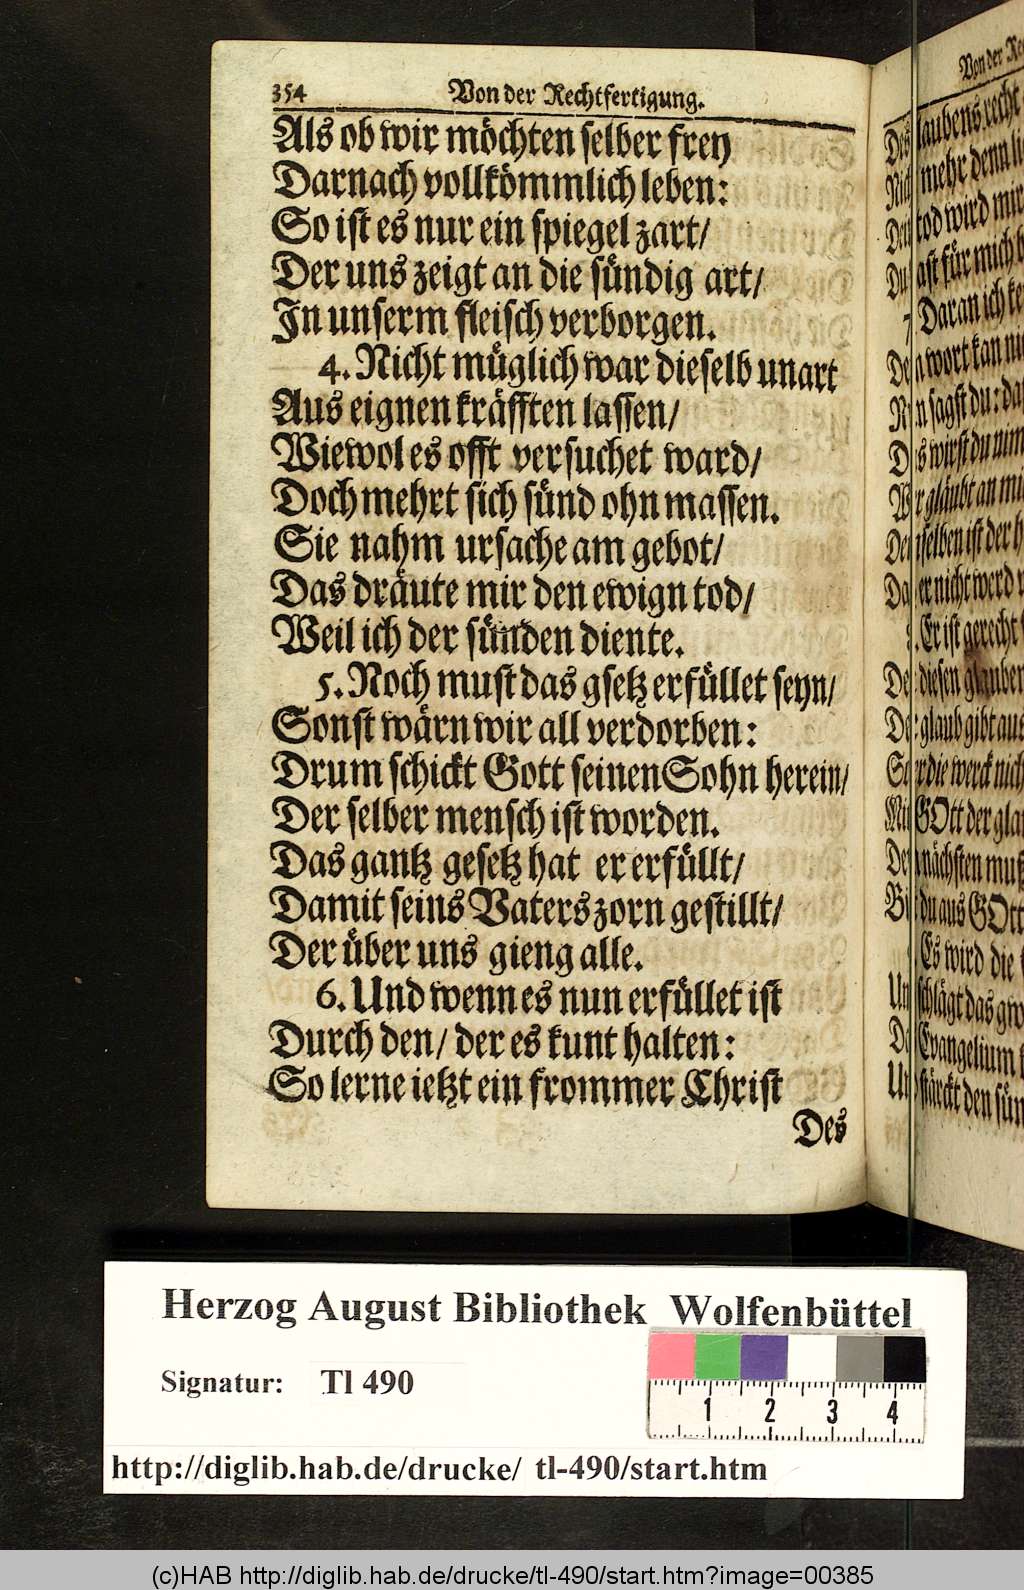 354 Von der Rechtfertigung.
Als ob wir möchten selber frey
Darnach vollkömmlich leben:
So ist es nur ein spiegel zart/
Der uns zeigt an die sündig art/
In unserm fleisch verborgen.
4. Nicht müglich war dieselb unart
Aus eignen kräfften lassen/
Wiewol es offt versuchet ward/
Doch mehrt sich sünd ohn massen.
Sie nahm ursache am gebot/
Das dräute mir den ewign tod/
Weil ich der sünden diente.
5. Noch must das gsetz erfüllet seyn/
Sonst wärn wir all verdorben:
Drum schickt Gott seinen Sohn herein/
Der selber mensch ist worden.
Das gantz gesetz hat er erfüllt/
Damit seins Vaters zorn gestillt/
Der über uns gieng alle.
6. Und wenn es nun erfüllet ist
Durch den/ der es kunt halten:
So lerne ietzt ein frommer Christ
Des
Von der
laubens recht
mehr denn
tod wird mir
für mich
7. Daran ich
wort kan
sagst du:
wirst du
gläubt an
ist der
er nicht werd
Er ist gerecht
diesen glauben
glaub gibt aus
die werck
GOtt der
nächsten
du aus GOtt
Es wird die
schlägt das
Evangelium
stärckt den
Herzog August Bibliothek Wolfenbüttel
Signatur: Tl 490
1 2 3 4
http://diglib.hab.de/drucke/ tl-490/start.htm
(c)HAB http://diglib.hab.de/drucke/tl-490/start.htm?image=00385